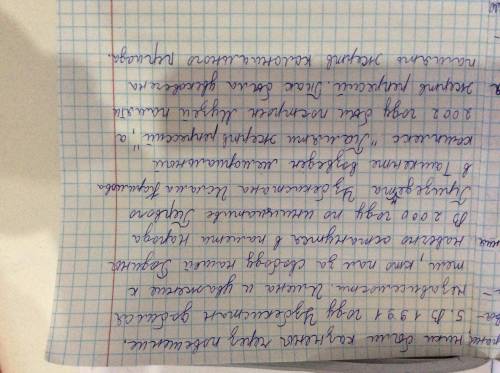 ними были казнены через повешение.
5. В 1991 году Узбекистан добился
независимости. Имена и уважение к
тем, кто пал за свободу нашей Родины
навечно останутся в памяти народа
В 2000 году по инициативе Первого
Президета Узбекистана Ислама Каримова
в Ташкенте возведен мемориальный
комплекс "Памяти жертв репрессий", а
2002 году был построен Музей памяти
жертв репрессий. Так была увековечена
память жертв колониального периода.